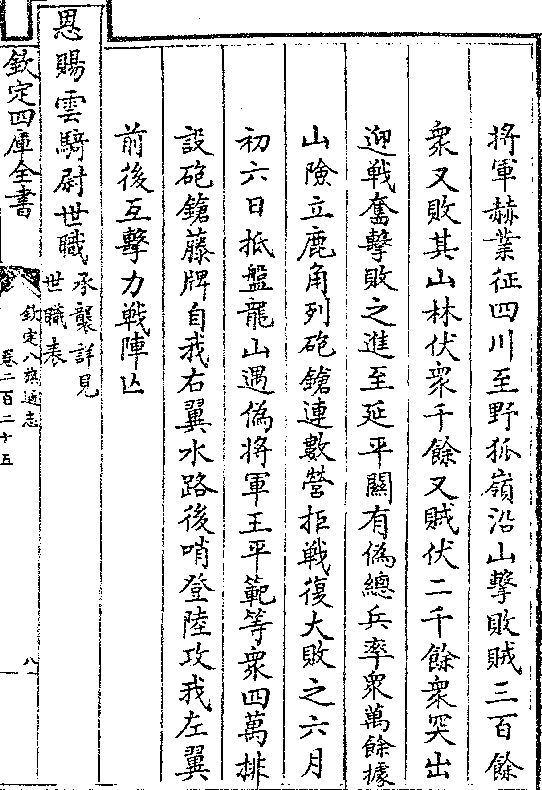 將軍赫業征四川至野狐嶺沿山擊敗賊三百餘
衆又敗其山林伏衆千餘又賊伏二千餘衆突出
迎戰奮擊敗之進至延平關有偽總兵率衆萬餘據
山險立鹿角列砲鎗連數營拒戰復大敗之六月
初六日抵盤龍山遇偽將軍王平範等衆四萬排
設砲鎗藤牌自我右翼水路後哨登陸攻我左翼
前後互擊力戰陣亾
恩賜雲騎尉世職
承襲詳見
世職表
欽定四庫全書
欽定八旗通志
卷二百二十五
八